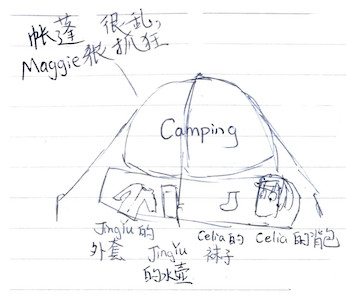 帐篷 很乱,
Maggie 很抓狂
Camping
JingYu 的
外套
JingYu
的水壶
Celia 的
袜子
Celia 的背包